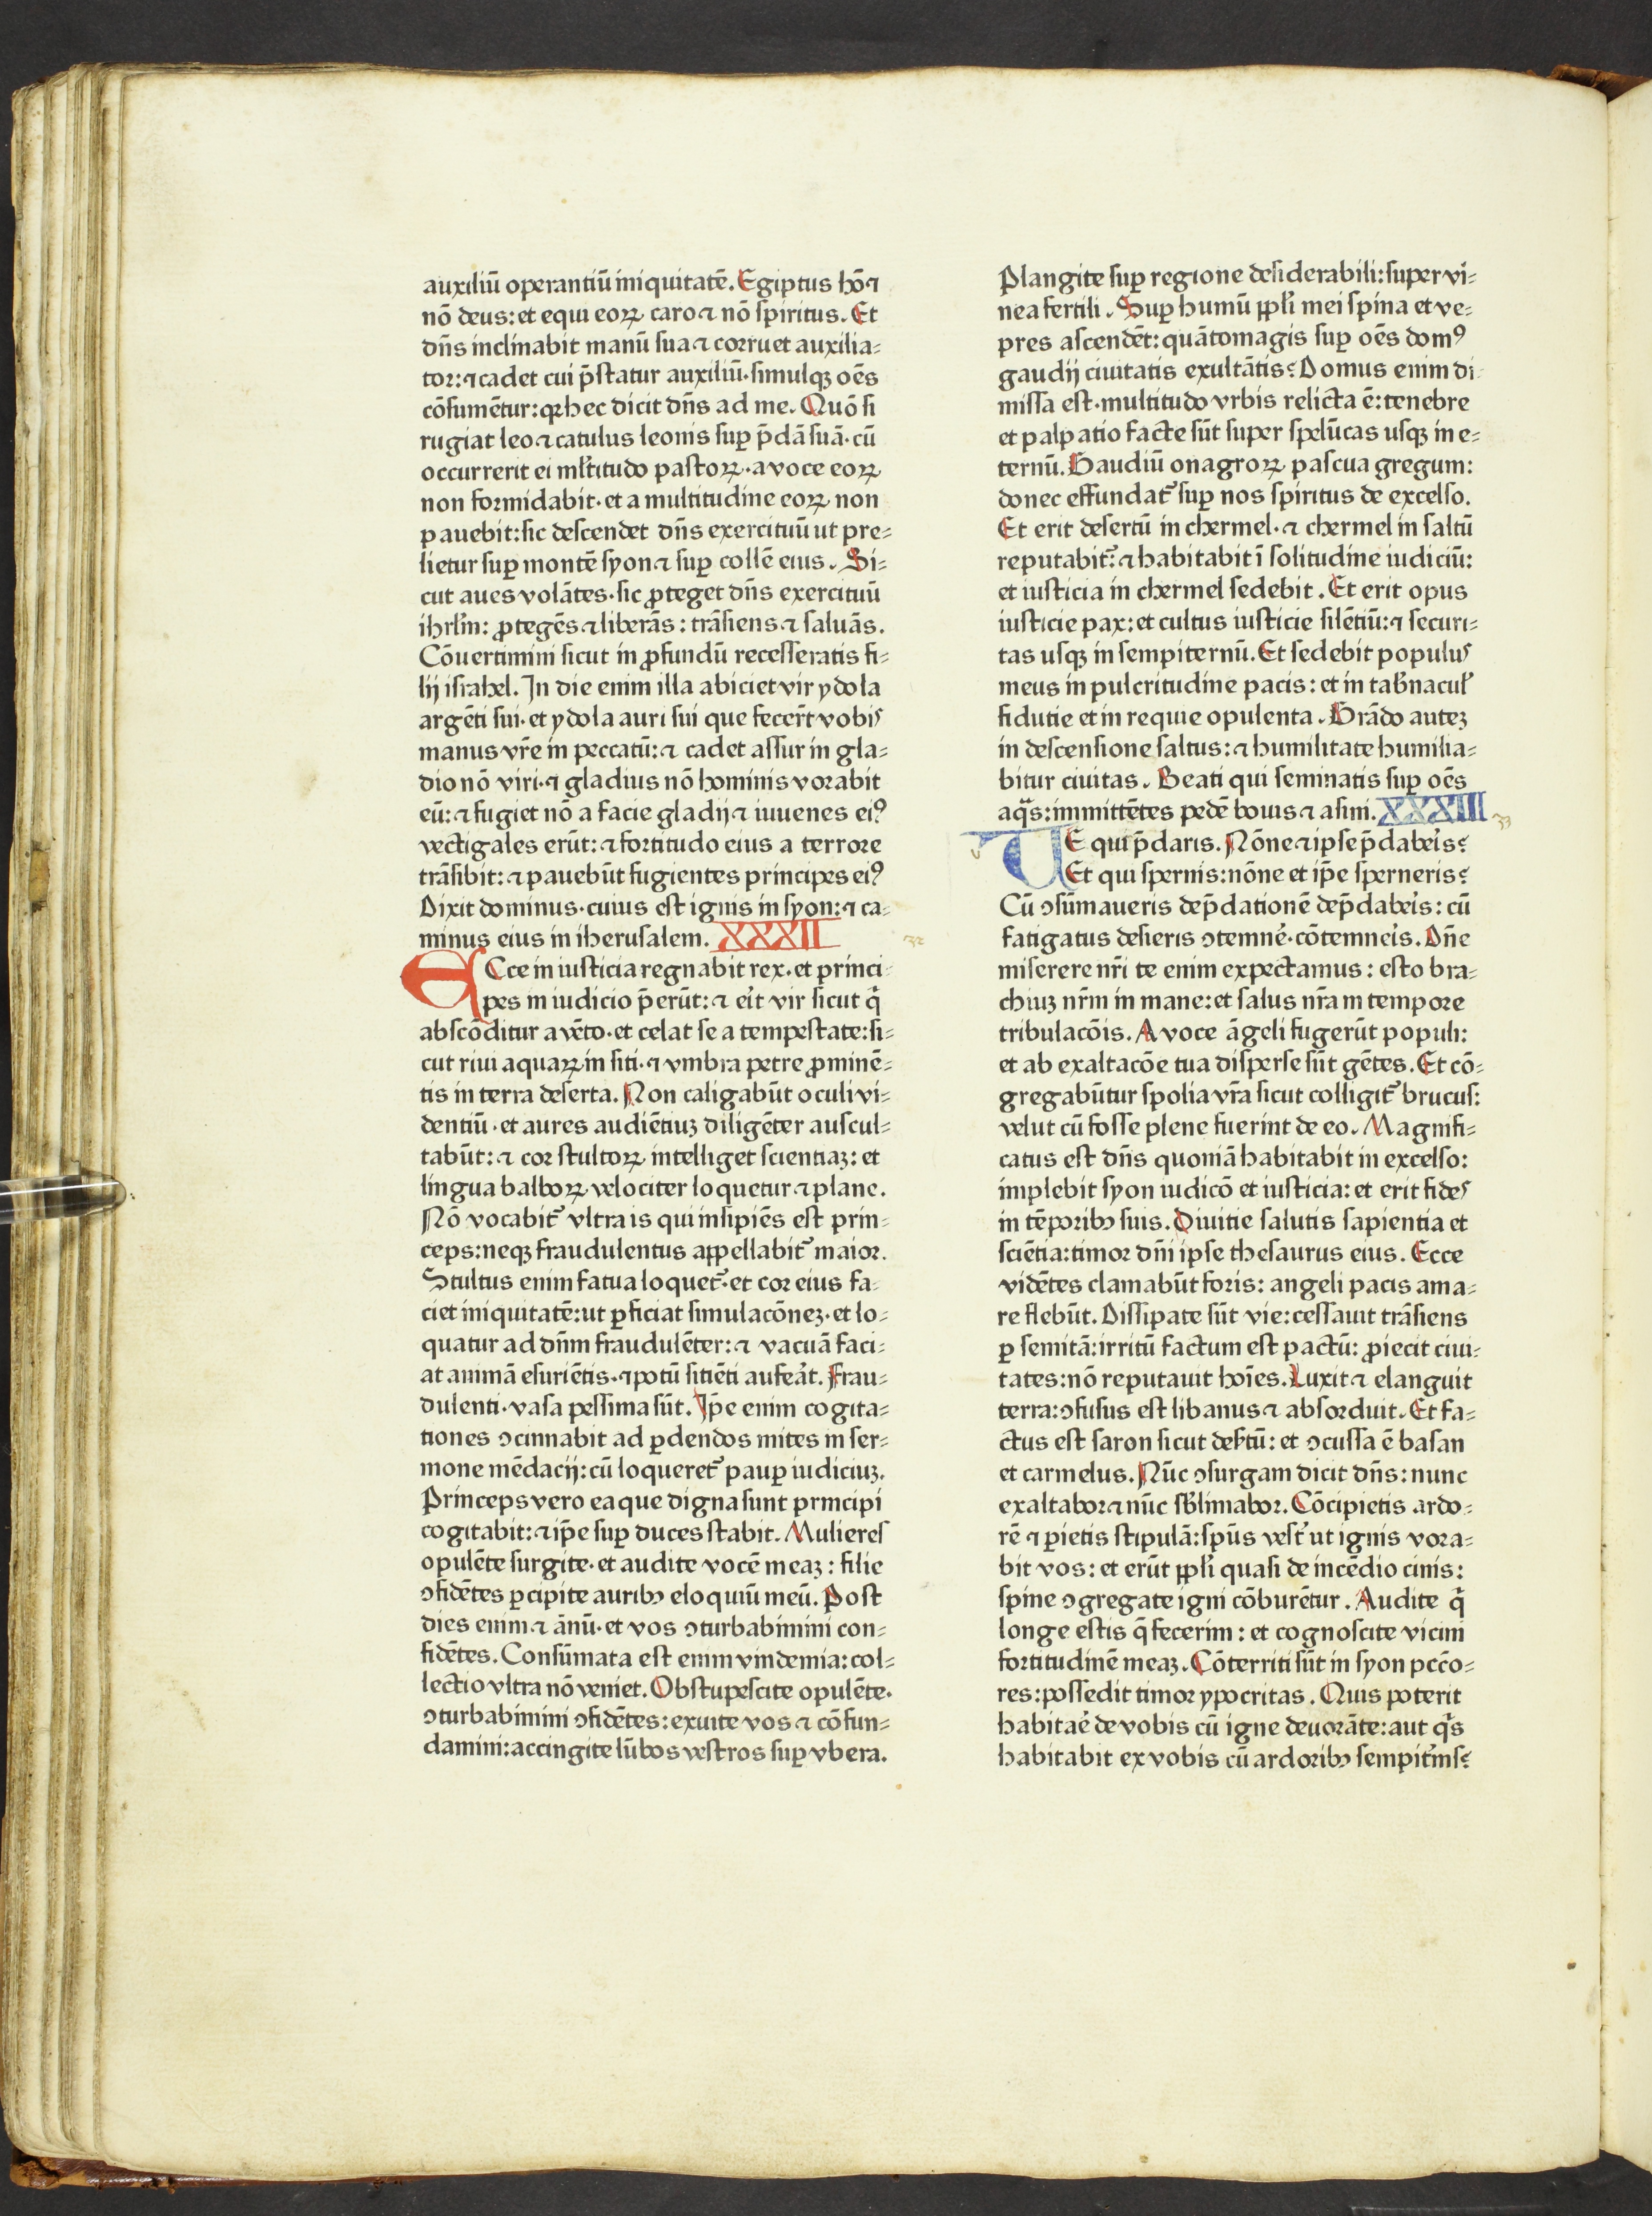 auxiliū operantiū iniquitatē. Egiptus hō ⁊
nō deus: et equi eoꝝ caro ⁊ nō spiritus. Et
dn̄s inclinabit manū sua ⁊ corruet auxilia-
tor: ⁊ cadet cui p̄statur auxiliū· simulqꝫ oēs
cōsumētur: qꝛ hec dicit dn̄s ad me. Quō si
rugiat leo ⁊ catulus leonis suꝑ p̄dā suā· cū
occurrerit ei ml̄titudo pastoꝝ· a voce eoꝝ
non formidabit· et a multitudine eoꝝ non
pauebit: sic descendet dn̄s exercituū ut pre-
lietur suꝑ montē syon ⁊ suꝑ collē eius. Si-
cut aues volātes· sic ꝓteget dn̄s exercituū
ihrl̄m: ꝓtegēs ⁊ liberās: trāsiens ⁊ saluās.
Cōuertimini sicut in ꝓfundū recesseratis fi-
lij israhel. In die enim illa abiciet vir ydola
argēti sui· et ydola auri sui que fecerūt vobis
manus vr̄e in peccatū: ⁊ cadet assur in gla-
dio nō viri· ⁊ gladius nō hominis vorabit
eū: ⁊ fugiet nō a facie gladij ⁊ iuuenes eiꝰ
vectigales erūt: ⁊ fortitudo eius a terrore
trāsibit: ⁊ pauebūt fugientes principes eiꝰ
Dixit dominus· cuius est ignis in syon: ⁊ ca-
minus eius in iherusalem. XXXII
ECce in iusticia regnabit rex· et princi-
pes in iudicio p̄erūt: ⁊ er̄it vir sicut q̄
abscōditur a vēto· et celat se a tempestate: si-
cut riui aquaꝝ in siti· ⁊ vmbra petre ꝓminē-
tis in terra deserta. Non caligabūt oculi vi-
dentiū· et aures audiētiuꝫ diligēter auscul-
tabūt: ⁊ cor stultoꝝ intelliget scientiaꝫ: et
lingua balboꝝ velociter loquetur ⁊ plane.
Nō vocabit᷑ vltra is qui insipiēs est prin-
ceps: neqꝫ fraudulentus appellabit᷑ maior.
Stultus enim fatua loquet᷑· et cor eius fa-
ciet iniquitatē: ut ꝑficiat simulacōneꝫ· et lo-
quatur ad dn̄m fraudulēter: ⁊ vacuā faci-
at animā esuriētis· ⁊ potū sitiēti aufeat̄. Frau-
dulenti· vasa pessima sūt. Ip̄e enim cogita-
tiones ꝯcinnabit ad ꝑdendos mites in ser-
mone mēdacij: cū loqueret᷑ pauꝑ iudiciuꝫ.
Princeps vero ea que digna sunt principi
cogitabit: ⁊ ip̄e suꝑ duces stabit. Mulieres
opulēte surgite· et audite vocē meaꝫ: filie
ꝯfidētes ꝑcipite auribꝰ eloquiū meū. Post
dies enim ⁊ ānū· et vos ꝯturbabimini con-
fidētes. Consūmata est enim vindemia: col-
lectio vltra nō veniet. Obstupescite opulēte·
ꝯturbabimini ꝯfidētes: exuite vos ⁊ cōfun-
damini: accingite lūbos vestros suꝑ vbera.
32
Plangite suꝑ regione desiderabili: super vi-
nea fertili. Suꝑ humū ppl̄i mei spina et ve-
pres ascendēt: quātomagis suꝑ oēs domꝰ
gaudij ciuitatis exultātis? Domus enim di-
missa est· multitudo vrbis relicta ē: tenebre
et palpatio facte sūt super spelūcas usqꝫ in e-
ternū. Gaudiū onagroꝝ pascua gregum:
donec effundat᷑ suꝑ nos spiritus de excelso.
Et erit desertū in chermel· ⁊ chermel in saltū
reputabit᷑: ⁊ habitabit ī solitudine iudiciū:
et iusticia in chermel sedebit. Et erit opus
iusticie pax: et cultus iusticie silētiū: ⁊ securi-
tas usqꝫ in sempiternū. Et sedebit populus
meus in pulcritudine pacis: et in tab̄nacul̄
fidutie et in requie opulenta. Grādo auteꝫ
in descensione saltus: ⁊ humilitate humilia-
bitur ciuitas. Beati qui seminatis suꝑ oēs
aqᷓs: immittētes pedē bouis ⁊ asini. XXXIII
33
v
UE qui p̄daris. Nōne ⁊ ipse p̄daber̄is?
Et qui spernis: nōne et ip̄e sperneris?
Cū ꝯsūmaueris dep̄dationē dep̄daber̄is: cū
fatigatus desieris ꝯtemner̄e· cōtemner̄is. Dn̄e
miserere nr̄i te enim expectamus: esto bra-
chiuꝫ nr̄m in mane: et salus nr̄a in tempore
tribulacōis. A voce āgeli fugerūt populi:
et ab exaltacōe tua disperse sūt gētes. Et cō-
gregabūtur spolia vr̄a sicut colligit᷑ brucus:
velut cū fosse plene fuerint de eo. Magnifi-
catus est dn̄s quoniā habitabit in excelso:
implebit syon iudicō et iusticia: et erit fides
in tēporibꝰ suis. Diuitie salutis sapientia et
sciētia: timor dn̄i ipse thesaurus eius. Ecce
vidētes clamabūt foris: angeli pacis ama-
re flebūt. Dissipate sūt vie: cessauit trāsiens
ꝑ semitā: irritū factum est pactū: ꝓiecit ciui-
tates: nō reputauit hoīes. Luxit ⁊ elanguit
terra: ꝯfusus est libanus ⁊ absorduit. Et fa-
ctus est saron sicut desertū: et ꝯcussa ē basan
et carmelus. Nūc ꝯsurgam dicit dn̄s: nunc
exaltabor ⁊ nūc sb̄limabor. Cōcipietis ardo-
rē ⁊ ꝑietis stipulā: sp̄us vest᷑ ut ignis vora-
bit vos: et erūt ppl̄i quasi de incēdio cinis:
spine ꝯgregate igni cōburētur. Audite q̄
longe estis q̄ fecerim: et cognoscite vicini
fortitudinē meaꝫ. Cōterriti sūt in syon pcc̄o-
res: possedit timor ypocritas. Quis poterit
habitar̄e de vobis cū igne deuorāte: aut qᷓs
habitabit ex vobis cū ardoribꝰ sempit᷑nis?